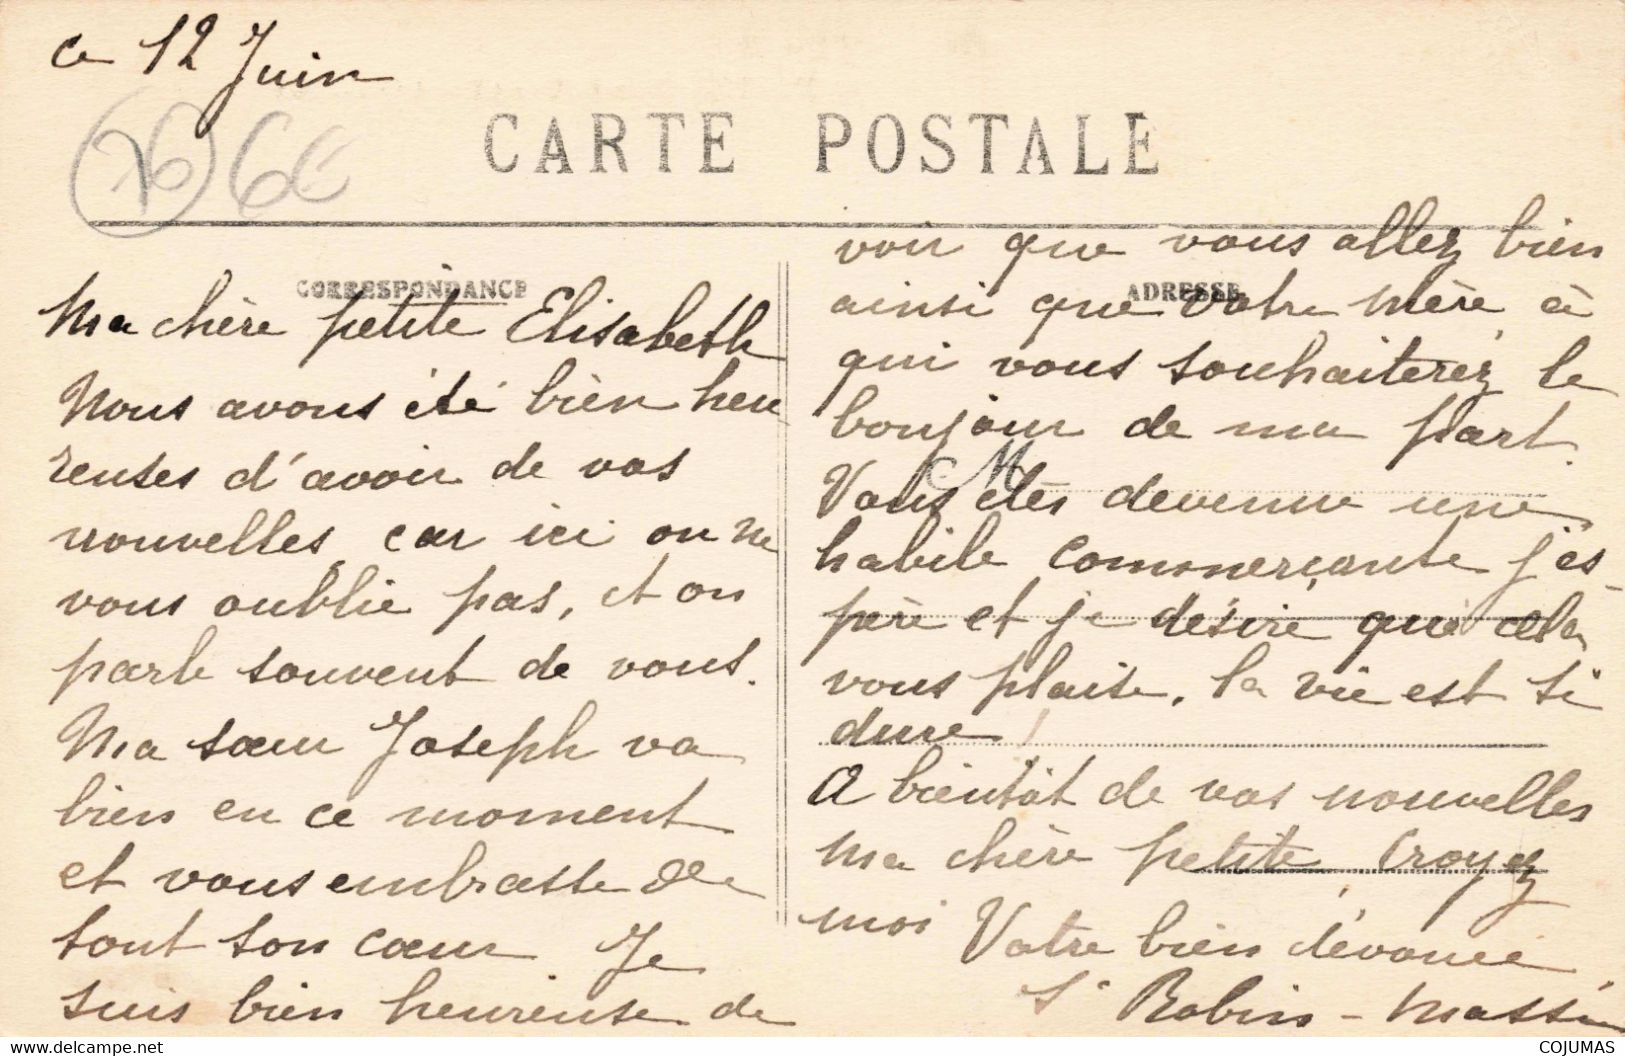 ce 12 Juin
76
CARTE POSTALE
CORRESPONDANCE
Ma chère petite Elisabeth
Nous avons été bien heu
reuses d'avoir de vos
nouvelles, car ici on ne
vous oublie pas, et on
parle souvent de vous.
Ma sœur Joseph va
bien en ce moment
et vous embrasse de
tout son cœur Je
suis bien heureuse de
ADRESSE
voir que vous allez bien
ainsi que votre mère à
qui vous souhaiterez le
bonjour de ma part.
Vous êtes devenue une
habile commerçante j'es-
père et je désire que cela
vous plaise, la vie est si
dure !
A bientôt de vos nouvelles
ma chère petite, Croyez
moi Votre bien dévouée
Robin - Massé
delcampe.net
COJUMAS